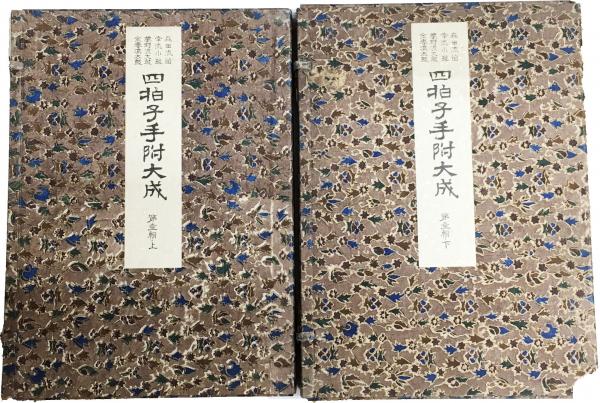 森田流笛
幸流小鼓
葛野流大鼓
金春流太鼓
四拍子手附大成
第五輯 上
森田流笛
幸流小鼓
葛野流大鼓
金春流太鼓
四拍子手附大成
第五輯 下